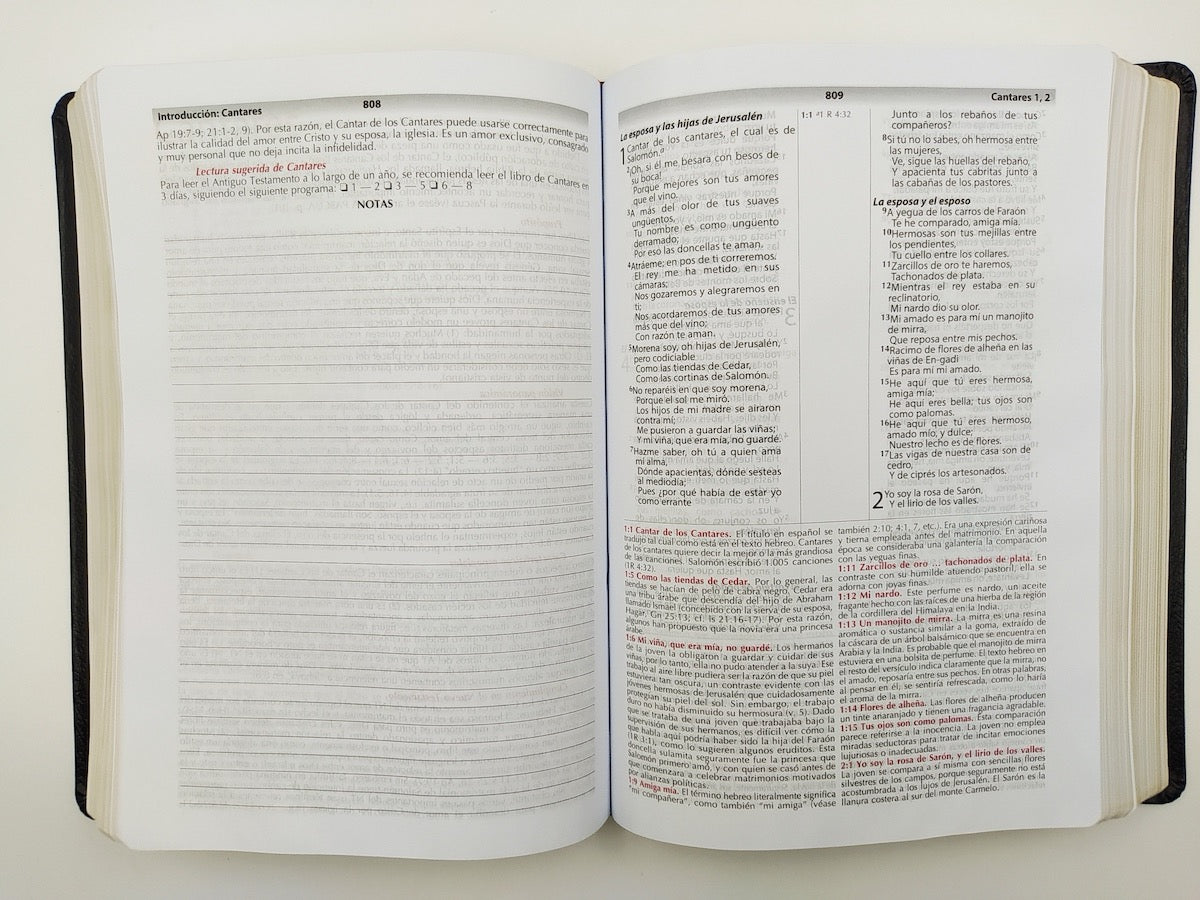 Introducción: Cantares
808
Ap 19:7-9; 21:1-2, 9). Por esta razón, el Cantar de los Cantares puede usarse correctamente para
ilustrar la calidad del amor entre Cristo y su esposa, la iglesia. Es un amor exclusivo, consagrado
y muy personal que no deja incita la infidelidad.
Lectura sugerida de Cantares
Para leer el Antiguo Testamento a lo largo de un año, se recomienda leer el libro de Cantares en
3 días, siguiendo el siguiente programa: ❑ 1 — 2 ❑ 3 — 5 ❑ 6 — 8
NOTAS
809
Cantares 1, 2
La esposa y las hijas de Jerusalén
1 Cantar de los cantares, el cual es de
Salomón.a
2¡Oh, si él me besara con besos de
su boca!
Porque mejores son tus amores
que el vino.
3A más del olor de tus suaves
ungüentos,
Tu nombre es como ungüento
derramado;
Por eso las doncellas te aman.
4Atráeme; en pos de ti correremos.
El rey me ha metido en sus
cámaras;
Nos gozaremos y alegraremos en
ti;
Nos acordaremos de tus amores
más que del vino;
Con razón te aman.
5Morena soy, oh hijas de Jerusalén,
pero codiciable
Como las tiendas de Cedar,
Como las cortinas de Salomón.
6No reparéis en que soy morena,
Porque el sol me miró.
Los hijos de mi madre se airaron
contra mí;
Me pusieron a guardar las viñas;
Y mi viña, que era mía, no guardé.
7Hazme saber, oh tú a quien ama
mi alma,
Dónde apacientas, dónde sesteas
al mediodía;
Pues ¿por qué había de estar yo
como errante
1:1 a1 R 4:32
Junto a los rebaños de tus
compañeros?
8Si tú no lo sabes, oh hermosa entre
las mujeres,
Ve, sigue las huellas del rebaño,
Y apacienta tus cabritas junto a
las cabañas de los pastores.
La esposa y el esposo
9A yegua de los carros de Faraón
Te he comparado, amiga mía.
10Hermosas son tus mejillas entre
los pendientes,
Tu cuello entre los collares.
11Zarcillos de oro te haremos,
Tachonados de plata.
12Mientras el rey estaba en su
reclinatorio,
Mi nardo dio su olor.
13Mi amado es para mí un manojito
de mirra,
Que reposa entre mis pechos.
14Racimo de flores de alheña en las
viñas de En-gadi
Es para mí mi amado.
15He aquí que tú eres hermosa,
amiga mía;
He aquí eres bella; tus ojos son
como palomas.
16He aquí que tú eres hermoso,
amado mío, y dulce;
Nuestro lecho es de flores.
17Las vigas de nuestra casa son de
cedro,
Y de ciprés los artesonados.
2 Yo soy la rosa de Sarón,
Y el lirio de los valles.
1:1 Cantar de los Cantares. El título en español se
tradujo tal cual como está en el texto hebreo. Cantares
de los cantares quiere decir la mejor o la más grandiosa
de las canciones. Salomón escribió 1.005 canciones
(1R 4:32).
1:5 Como las tiendas de Cedar. Por lo general, las
tiendas se hacían de pelo de cabra negro. Cedar era
una tribu árabe que descendía del hijo de Abraham
llamado Ismael (concebido con la sierva de su esposa,
Hagar, Gn 25:13; cf. Is 21:16-17). Por esta razón,
algunos han propuesto que la novia era una princesa
árabe.
1:6 Mi viña, que era mía, no guardé. Los hermanos
de la joven la obligaron a guardar y cuidar de sus
viñas; por lo tanto, ella no pudo atender a la suya. Ese
trabajo al aire libre pudiera ser la razón de que su piel
estuviera tan oscura, un contraste evidente con las
jóvenes hermosas de Jerusalén que cuidadosamente
protegían su piel del sol. Sin embargo, el trabajo
duro no había disminuido su hermosura (v. 5). Dado
que se trataba de una joven que trabajaba bajo la
supervisión de sus hermanos, es difícil ver cómo la
que habla aquí podría haber sido la hija del Faraón
(1R 3:1), como lo sugieren algunos eruditos. Esta
doncella sulamita seguramente fue la princesa que
Salomón primero amó, y con quien se casó antes de
que comenzara a celebrar matrimonios motivados
por alianzas políticas.
1:9 Amiga mía. El término hebreo literalmente significa
“mi compañera”, como también “mi amiga” (véase
también 2:10; 4:1, 7, etc.). Era una expresión cariñosa
y tierna empleada antes del matrimonio. En aquella
época se consideraba una galantería la comparación
con las yeguas finas.
1:11 Zarcillos de oro ... tachonados de plata. En
contraste con su humilde atuendo pastoril, ella se
adorna con joyas finas.
1:12 Mi nardo. Este perfume es nardo, un aceite
fragante hecho con las raíces de una hierba de la región
de la cordillera del Himalaya en la India.
1:13 Un manojito de mirra. La mirra es una resina
aromática o sustancia similar a la goma, extraído de
la cáscara de un árbol balsámico que se encuentra en
Arabia y la India. Es probable que el manojito de mirra
estuviera en una bolsita de perfume. El texto hebreo en
el resto del versículo indica claramente que la mirra, no
el amado, reposaría entre sus pechos. En otras palabras,
al pensar en él, se sentiría refrescada, como lo haría
el aroma de la mirra.
1:14 Flores de alheña. Las flores de alheña producen
un tinte anaranjado y tienen una fragancia agradable.
1:15 Tus ojos son como palomas. Esta comparación
parece referirse a la inocencia. La joven no emplea
miradas seductoras para tratar de incitar emociones
lujuriosas o inadecuadas.
2:1 Yo soy la rosa de Sarón, y el lirio de los valles.
La joven se compara a sí misma con sencillas flores
silvestres de los campos, porque seguramente no está
acostumbrada a los lujos de Jerusalén. El Sarón es la
llanura costera al sur del monte Carmelo.